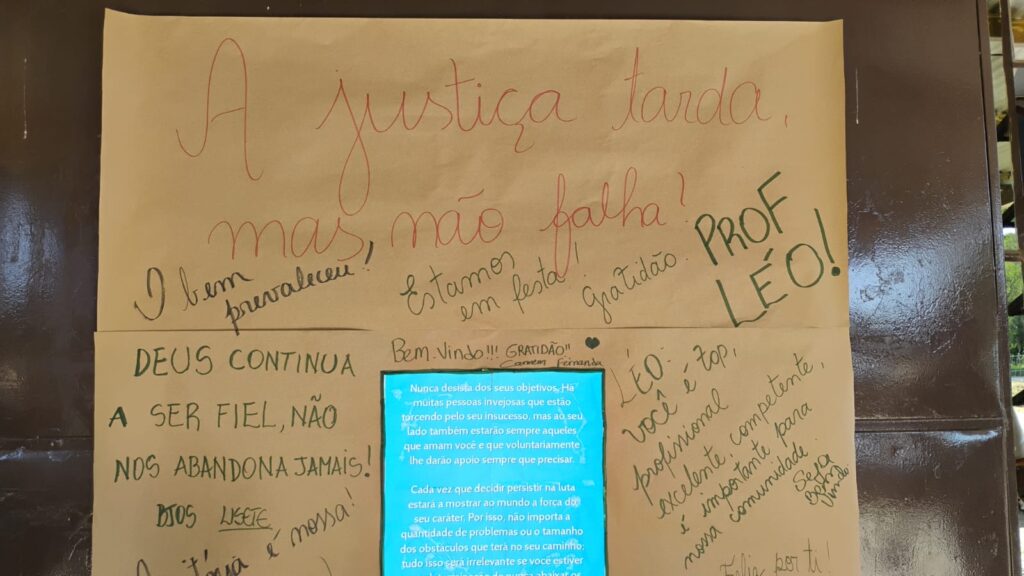 A justiça tarda,
mas não falha!
O bem
prevaleceu!
Estamos
em festa!
gratidão.
PROF
LÉO!
Bem-Vindo!!! GRATIDÃO"
Carmem Fernanda
DEUS CONTINUA
A SER FIEL, NÃO
NOS ABANDONA JAMAIS!
BJOS LISETE
A vitória é nossa!
Nunca desista dos seus objetivos. Há
muitas pessoas invejosas que estão
torcendo pelo seu insucesso, mas ao seu
lado também estarão sempre aqueles
que amam você e que voluntariamente
lhe darão apoio sempre que precisar.
Cada vez que decidir persistir na luta
estará a mostrar ao mundo a força do
seu caráter. Por isso, não importa a
quantidade de problemas ou o tamanho
dos obstáculos que terá no seu caminho;
tudo isso será irrelevante se você estiver
LÉO-
VOCÊ é top,
profissional
excelente, competente,
é importante para
nossa comunidade.
Seja
Bem
Vindo
Feliz por ti!